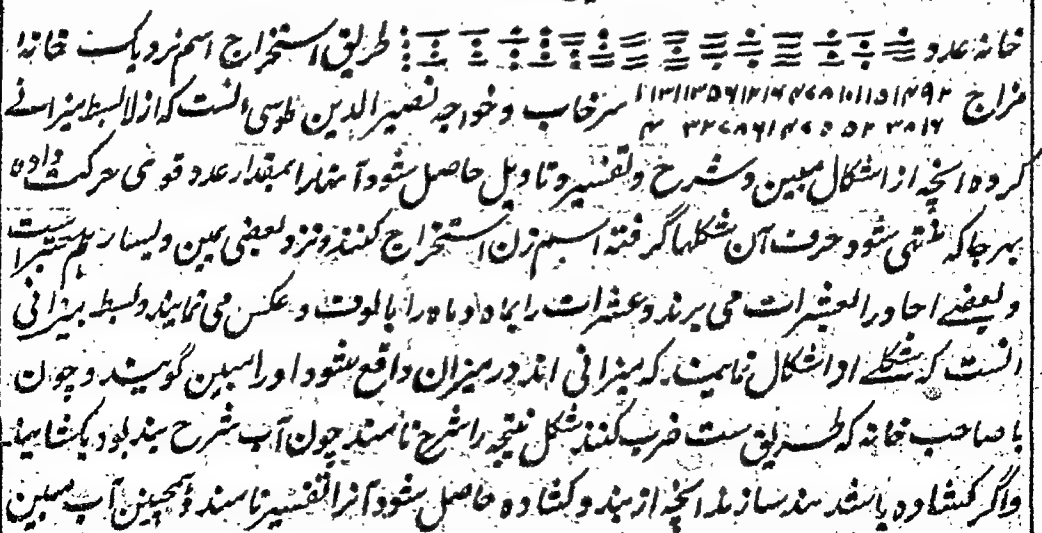 خانه عدد طریق استخراج اسم نزدیک خانه
مزاج سرخاب و خواجه نصیر الدین طوسی آنست که از لا بسط میزانے
کرده انچه از اشکال مبین و شرح و تفسیر و تاویل حاصل شود آنها را بمقدار عدد قوسی حرکت داده
بهر جا که منتهی شود حرف آن شکلها گرفته اسم زن استخراج کنند و نزد بعضی یمین و یسار هم معتبر است
و بعضے احاد را بعشرات می برند و عشرات را بماه و ماه را بالوف و عکس می نمایند و بسط میزانی
آنست که شکلے او اشکال نمایند که میزانی اند در میزان واقع شود او را مبین گویند و چون
با صاحب خانه که طریق ست ضرب کنند شکل نتیجه را شرح نامند چون آب شرح بند بود بکشایند
و اگر کشاده باشد بند سازند انچه از بند و کشاده حاصل شود آنرا تفسیر نامند و همچنین آب مبین